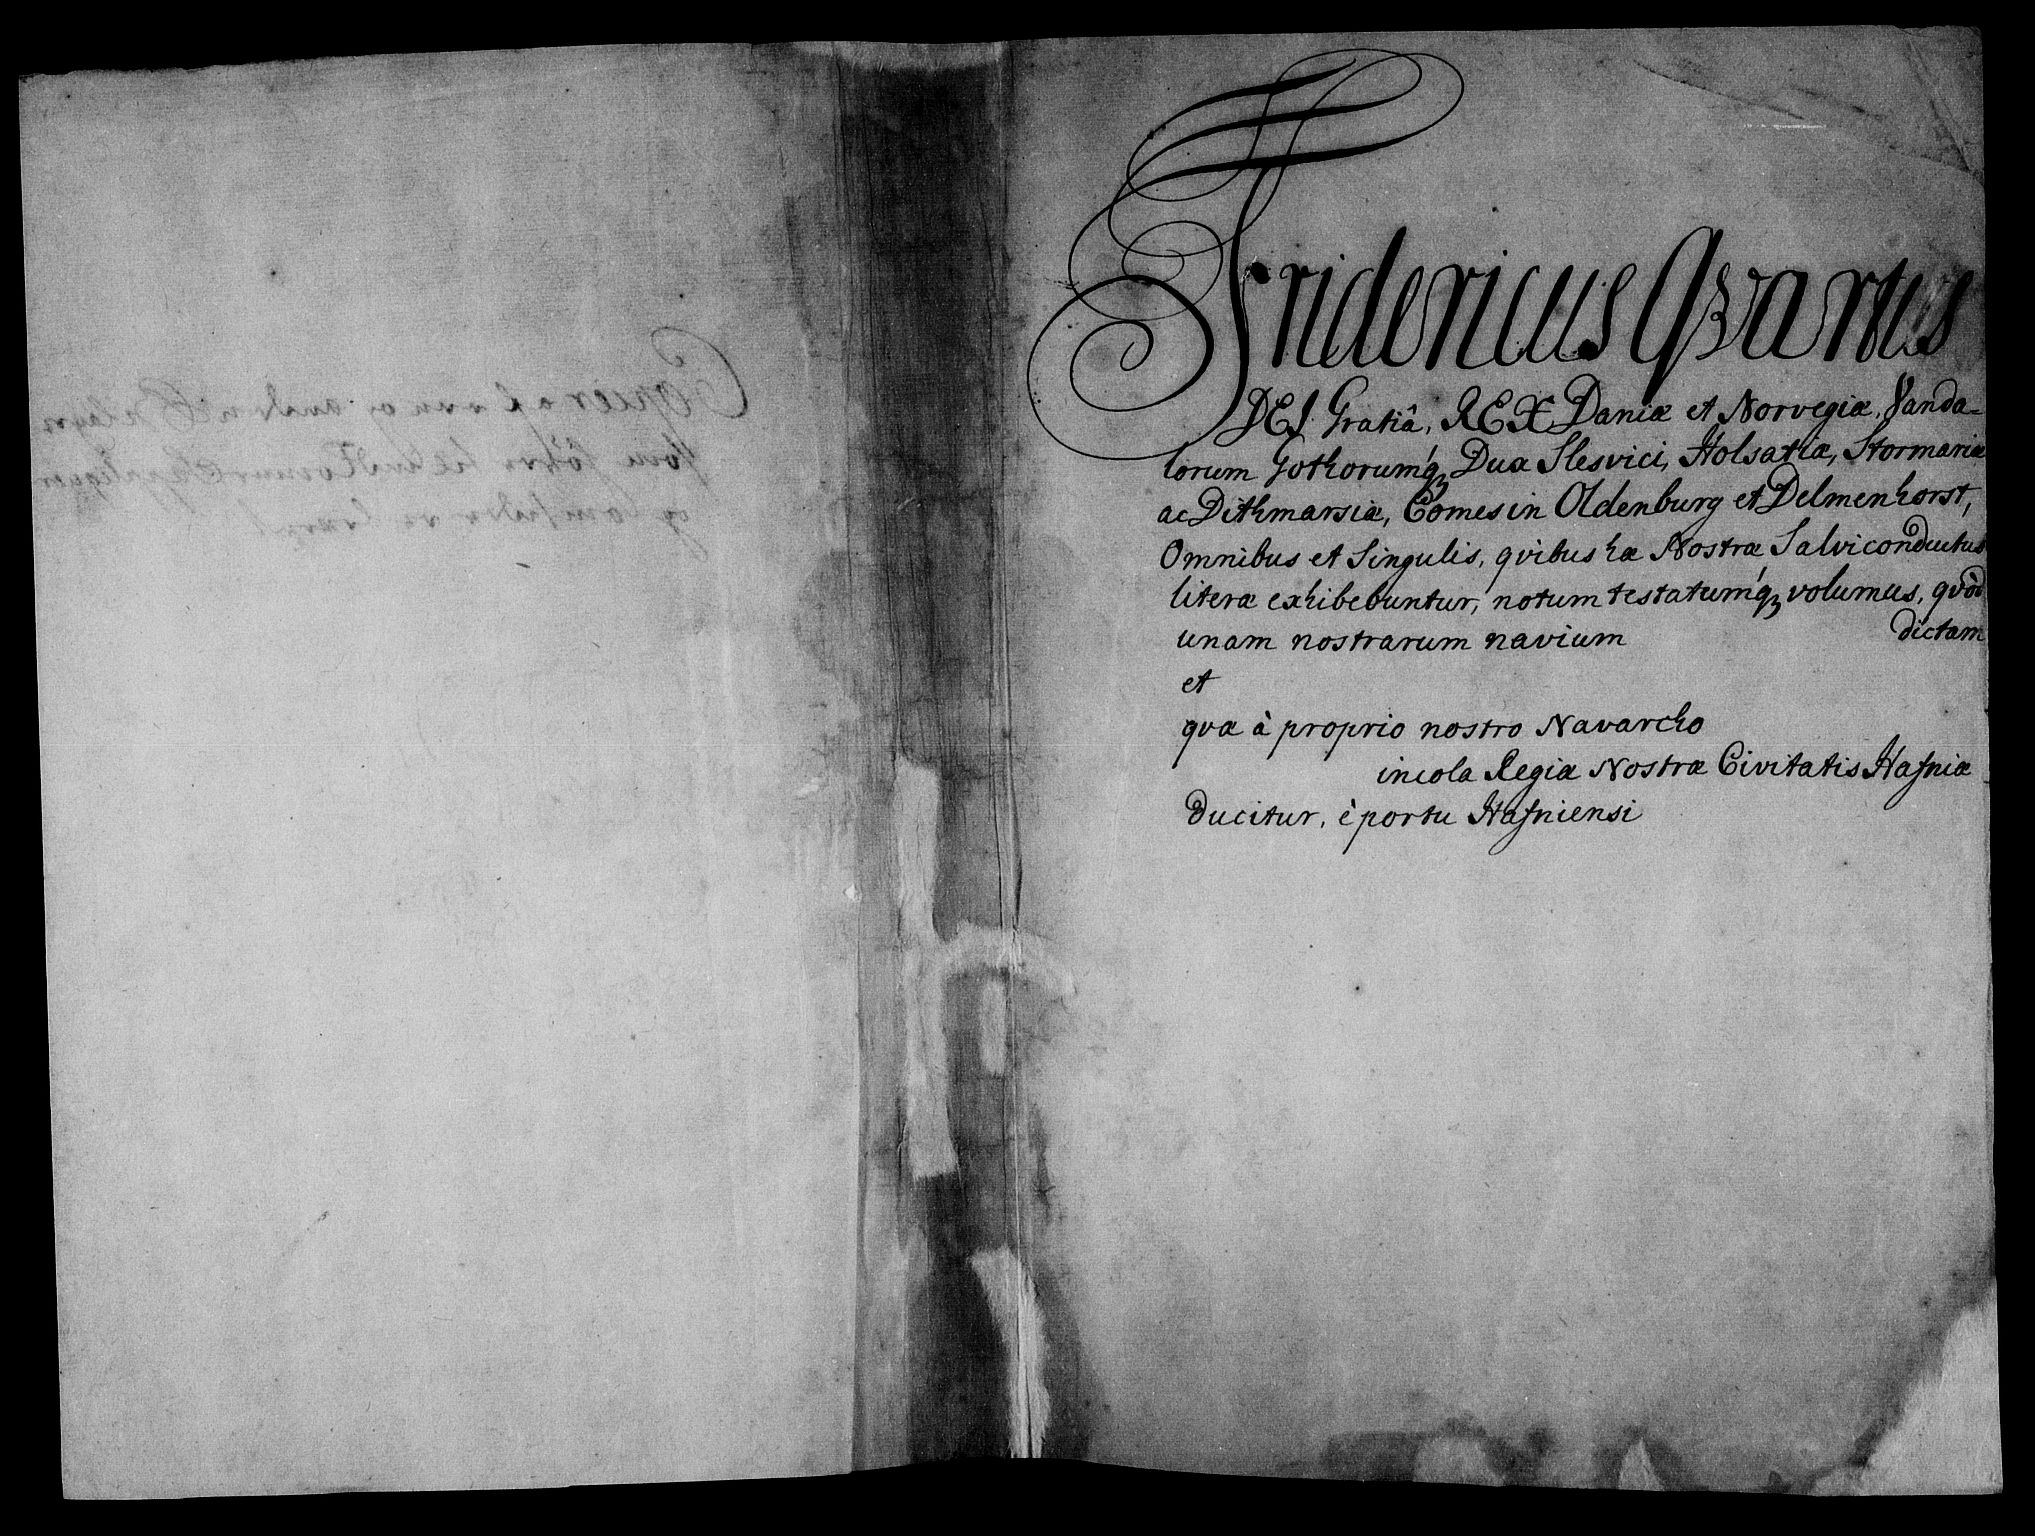 Fridericus Qvartus
DEI Gratiâ, REX Daniæ et Norvegiæ, Vanda-
lorum Gothorumq́ꝫ Dux Slesvici, Holsatiæ, Stormariæ
ac Dithmarsiæ, Comes in Oldenburg et Delmenhorst,
Omnibus et Singulis, qvibus hæ Nostræ Salviconductus
literæ exhibebuntur, notum testatumq́ꝫ volumus, qvòd
unam nostrarum navium dictam
et
qvæ à proprio nostro Navarcho
incola Regiæ Nostræ Civitatis Hafniæ
ducitur, è portu Hafniensi